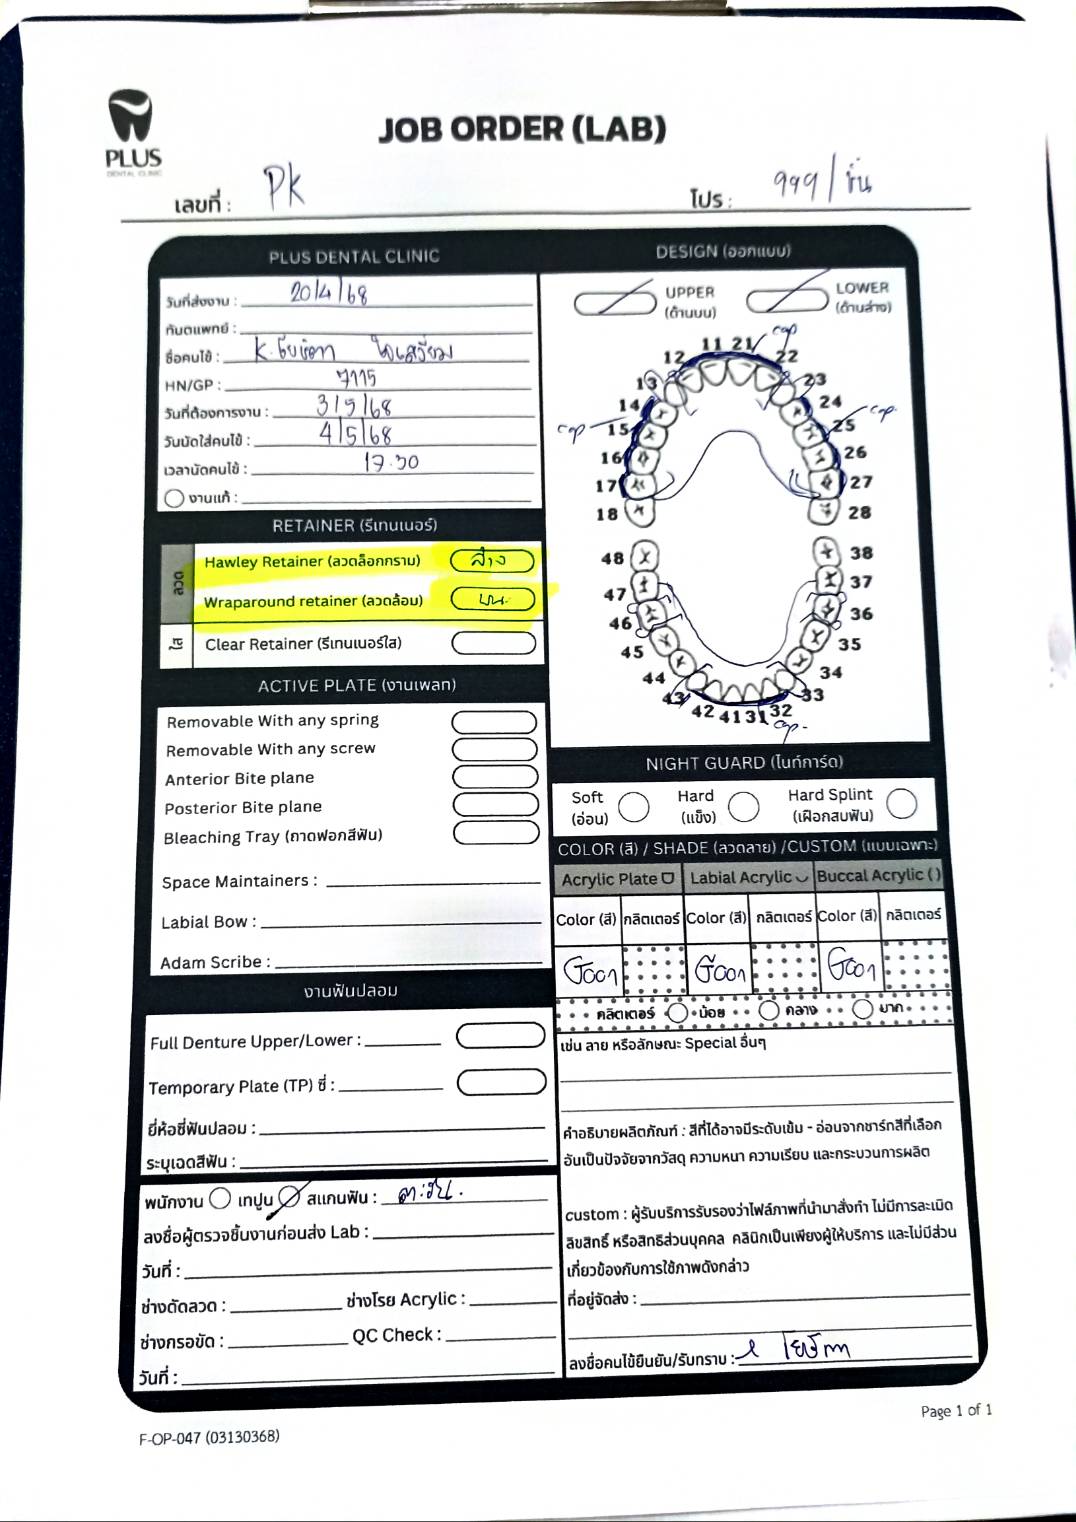 PLUS
DENTAL CLINIC
JOB ORDER (LAB)
เลขที่ : PK
โปร : 999 / ชิ้น
PLUS DENTAL CLINIC
วันที่ส่งงาน : 20/4/68
ทันตแพทย์ :
ชื่อคนไข้ : K.
HN/GP : 7115
วันที่ต้องการงาน : 3/5/68
วันนัดใส่คนไข้ : 4/5/68
เวลานัดคนไข้ : 17.30
งานแก้ :
RETAINER (รีเทนเนอร์)
ลวด
Hawley Retainer (ลวดล็อกกราม) ล่าง
Wraparound retainer (ลวดล้อม) บน
ใส
Clear Retainer (รีเทนเนอร์ใส)
ACTIVE PLATE (งานเพลท)
Removable With any spring
Removable With any screw
Anterior Bite plane
Posterior Bite plane
Bleaching Tray (ถาดฟอกสีฟัน)
Space Maintainers :
Labial Bow :
Adam Scribe :
งานฟันปลอม
Full Denture Upper/Lower :
Temporary Plate (TP) ซี่ :
ยี่ห้อซี่ฟันปลอม :
ระบุเฉดสีฟัน :
พนักงาน เทปูน สแกนฟัน :
ลงชื่อผู้ตรวจชิ้นงานก่อนส่ง Lab :
วันที่ :
ช่างดัดลวด : ช่างโรย Acrylic :
ช่างกรอขัด : QC Check :
วันที่ :
DESIGN (ออกแบบ)
UPPER (ด้านบน)
LOWER (ด้านล่าง)
cap
11 21
12 22
13 23
14 24
cap 15 25 cap.
16 26
17 27
18 28
48 38
47 37
46 36
45 35
44 34
43 33
42 41 31 32
cap-
NIGHT GUARD (ไนท์การ์ด)
Soft (อ่อน)
Hard (แข็ง)
Hard Splint (เฝือกสบฟัน)
COLOR (สี) / SHADE (ลวดลาย) /CUSTOM (แบบเฉพาะ)
Acrylic Plate Labial Acrylic Buccal Acrylic ( )
Color (สี) กลิตเตอร์ Color (สี) กลิตเตอร์ Color (สี) กลิตเตอร์
G001 G001 G001
กลิตเตอร์ น้อย กลาง มาก
เช่น ลาย หรือลักษณะ Special อื่นๆ
คำอธิบายผลิตภัณฑ์ : สีที่ได้อาจมีระดับเข้ม - อ่อนจากชาร์ทสีที่เลือก
อันเป็นปัจจัยจากวัสดุ ความหนา ความเรียบ และกระบวนการผลิต
custom : ผู้รับบริการรับรองว่าไฟล์ภาพที่นำมาสั่งทำ ไม่มีการละเมิด
ลิขสิทธิ์ หรือสิทธิส่วนบุคคล คลินิกเป็นเพียงผู้ให้บริการ และไม่มีส่วน
เกี่ยวข้องกับการใช้ภาพดังกล่าว
ที่อยู่จัดส่ง :
ลงชื่อคนไข้ยืนยัน/รับทราบ :
Page 1 of 1
F-OP-047 (03130368)